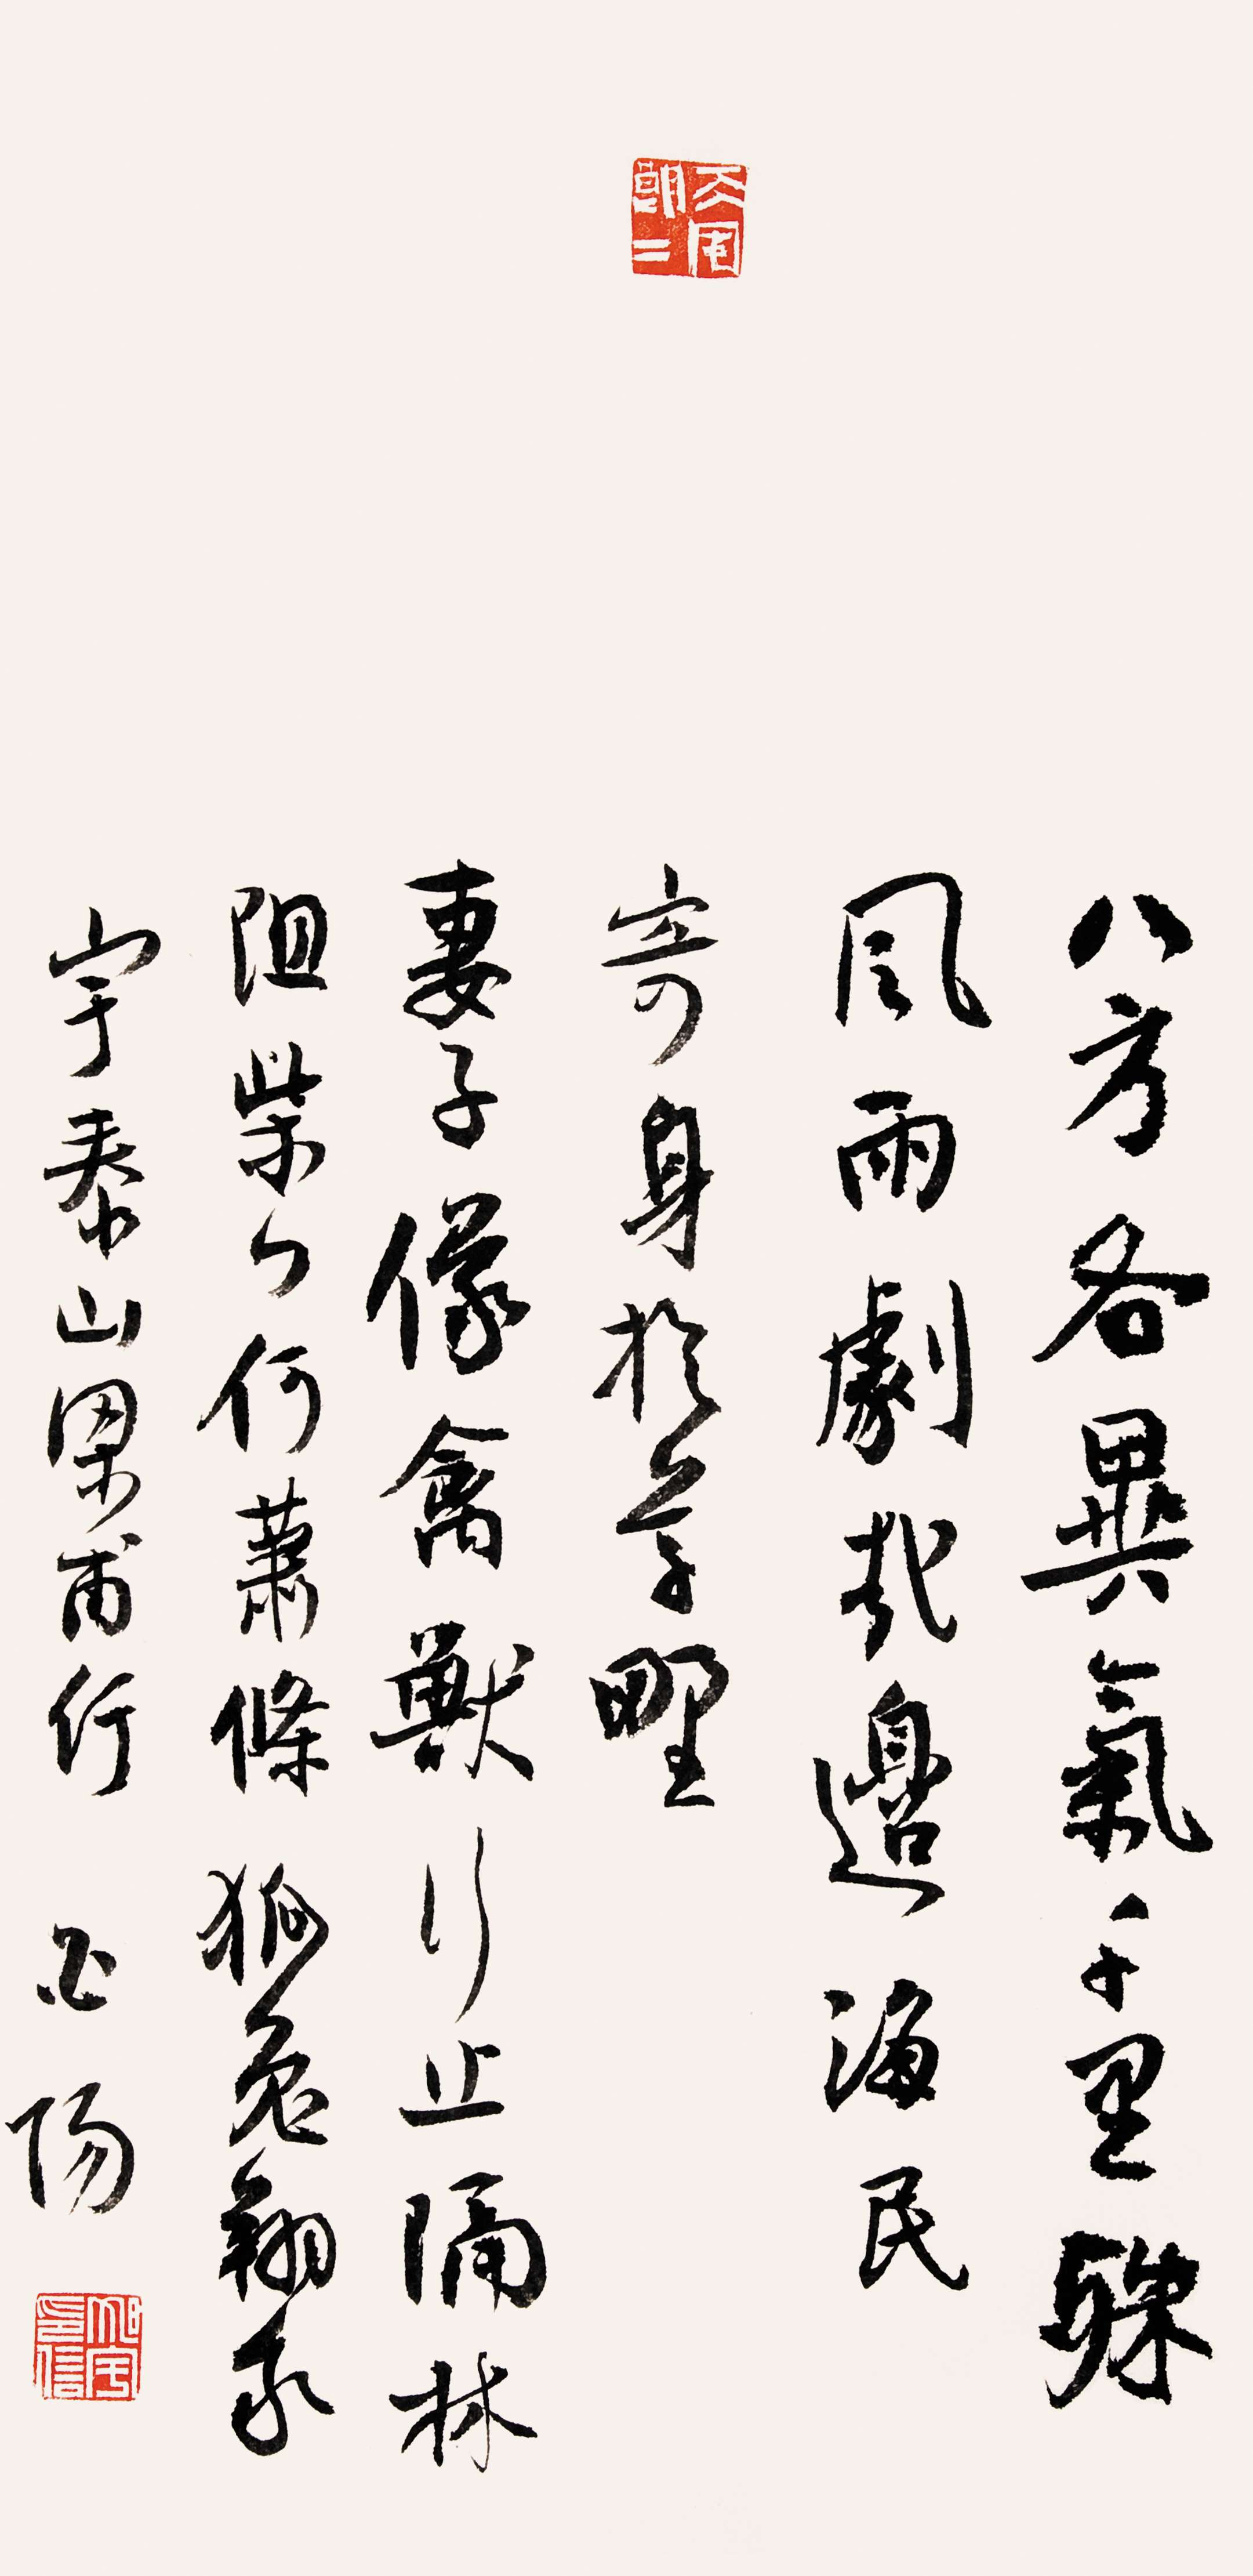 八方各異氣千里殊
風雨劇哉邊海民
寄身於草野
妻子像禽獸行止隔林
阻柴門何蕭條狐兔翔我
宇泰山梁甫行 陽
旭宇印信